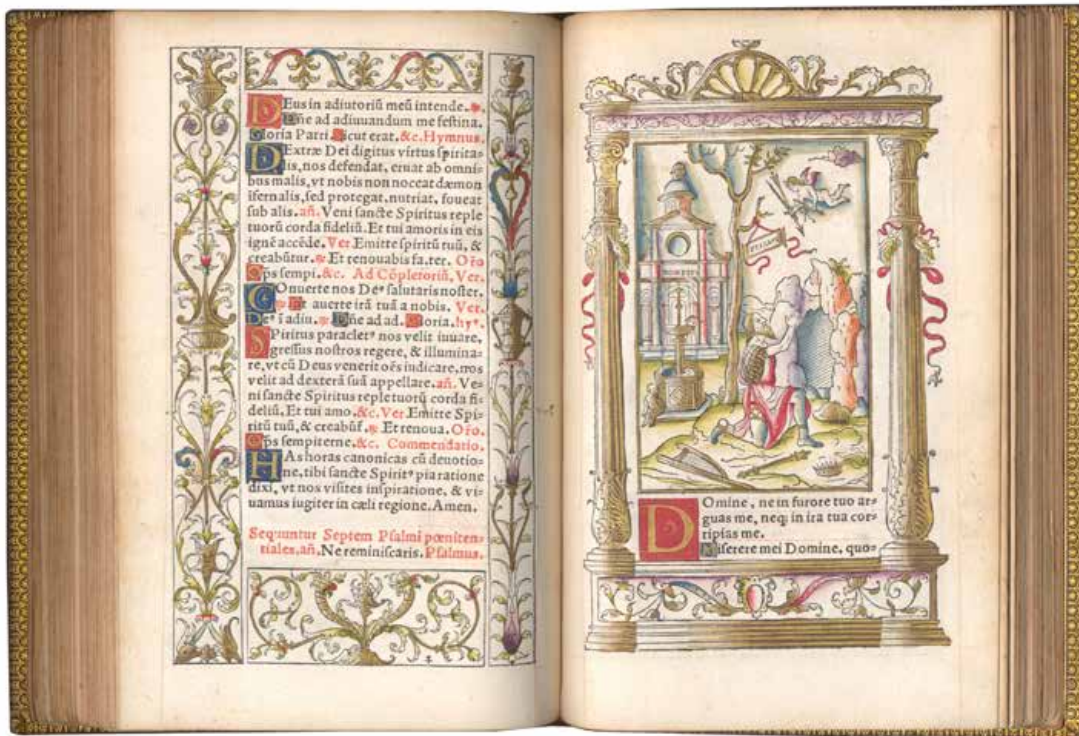 DEus in adiutoriū meū intende. ℟.
Dñe ad adiuuandum me festina.
Gloria Patri. Sicut erat. &c. Hymnus.
DExtræ Dei digitus virtus spirita-
lis, nos defendat, eruat ab omni-
bus malis, vt nobis non noceat dæmon
īfernalis, sed protegat, nutriat, foueat
sub alis. añ. Veni sancte Spiritus reple
tuorū corda fideliū. Et tui amoris in eis
ignē accēde. Ver. Emitte spiritū tuū, &
creabūtur. ℟ Et renouabis fa. ter. Oro
Ops sempi. &c. Ad Cōpletoriū, Ver.
COnuerte nos Deꝰ salutaris noster.
℟ Et auerte irā tuā a nobis. Ver.
Deꝰ ī adiu. ℟ Dñe ad ad. Gloria. hyꝰ.
SPiritus paracletꝰ nos velit iuuare,
gressus nostros regere, & illumina-
re, vt cū Deus venerit oēs iudicare, nos
velit ad dexterā suā appellare. añ. Ve-
ni sancte Spiritus reple tuorū corda fi-
deliū. Et tui amo. &c. Ver Emitte Spi-
ritū tuū, & creabūt. ℟ Et renoua. Oro.
Ops sempiterne. &c. Commendatio.
HAs horas canonicas cū deuotio-
ne, tibi sancte Spiritꝰ pia ratione
dixi, vt nos visites inspiratione, & vi-
uamus iugiter in cæli regione. Amen.
Sequuntur Septem Psalmi pœniten-
tiales. añ. Ne reminiscaris. Psalmus.
DOmine, ne in furore tuo ar-
guas me, neq; in ira tua cor-
ripias me.
Miserere mei Domine, quo-